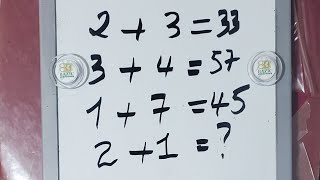 2 + 3 = 33
3 + 4 = 57
1 + 7 = 45
2 + 1 = ?